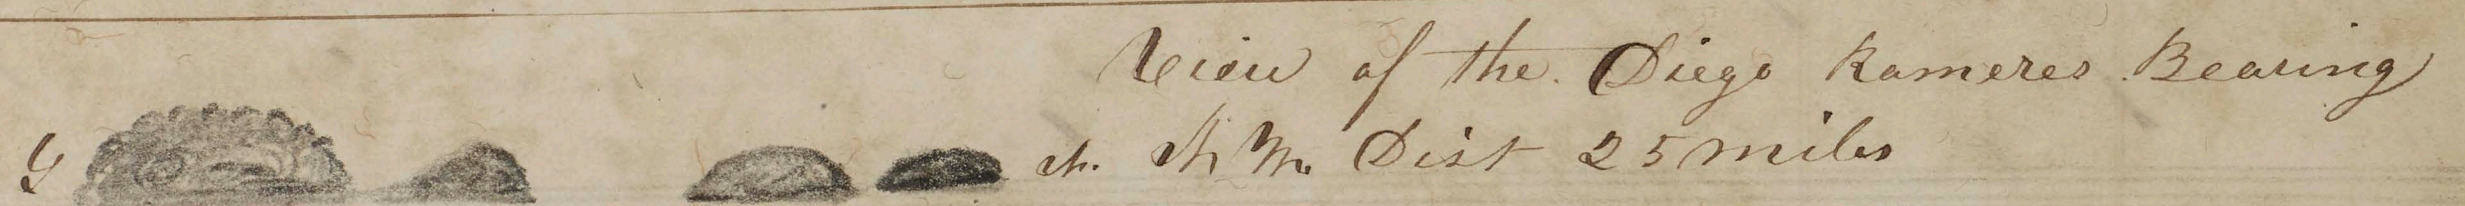 View of the Diego Rameres Bearing
S N. N W. Dist 25 miles